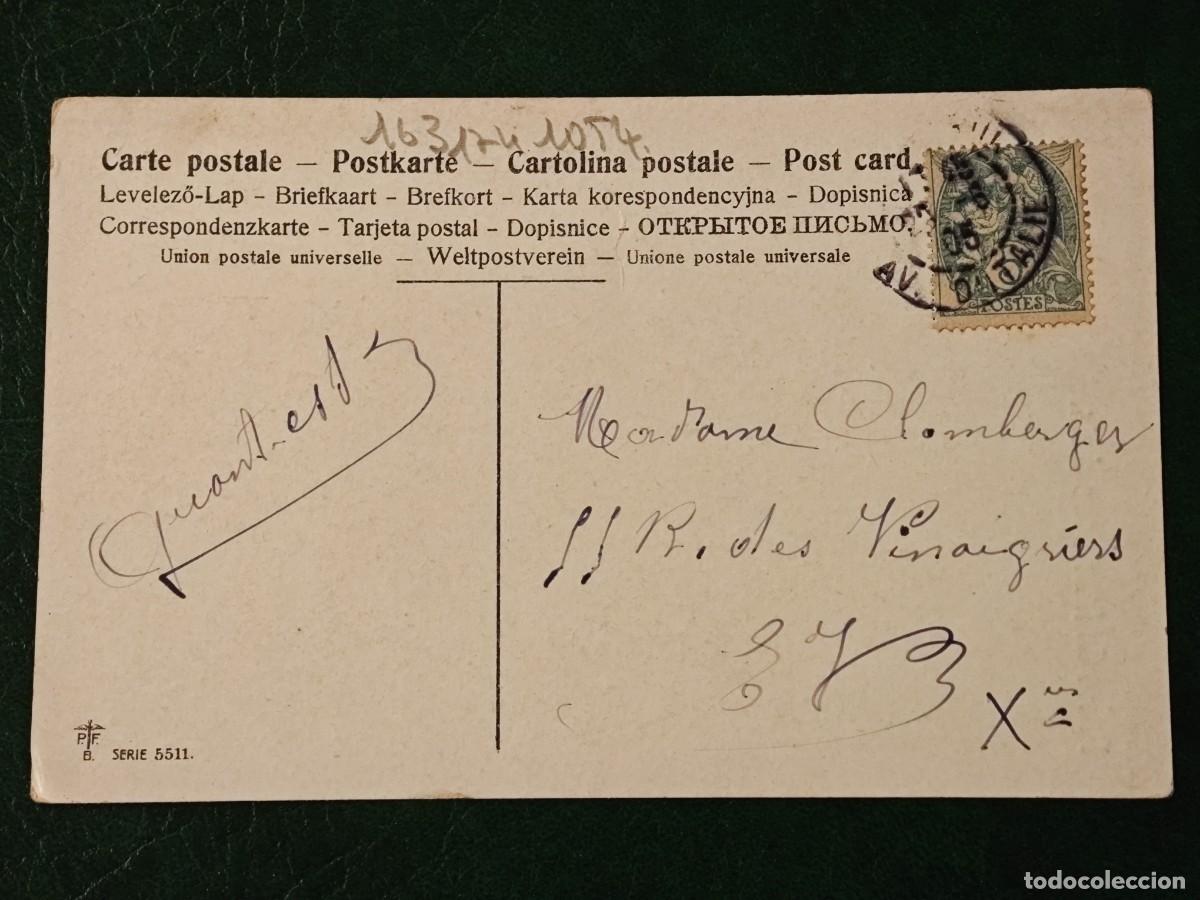 163174 1054.
Carte postale – Postkarte – Cartolina postale – Post card.
Levelező-Lap - Briefkaart - Brefkort - Karta korespondencyjna - Dopisnica
Correspondenzkarte - Tarjeta postal - Dopisnice - ОТКРЫТОЕ ПИСЬМО.
Union postale universelle – Weltpostverein – Unione postale universale
AV. D'ITALIE
05
POSTES
Madame Clomberger
11 R. des Vinaigriers
EV
X
P.F.
B. SERIE 5511.
todocoleccion